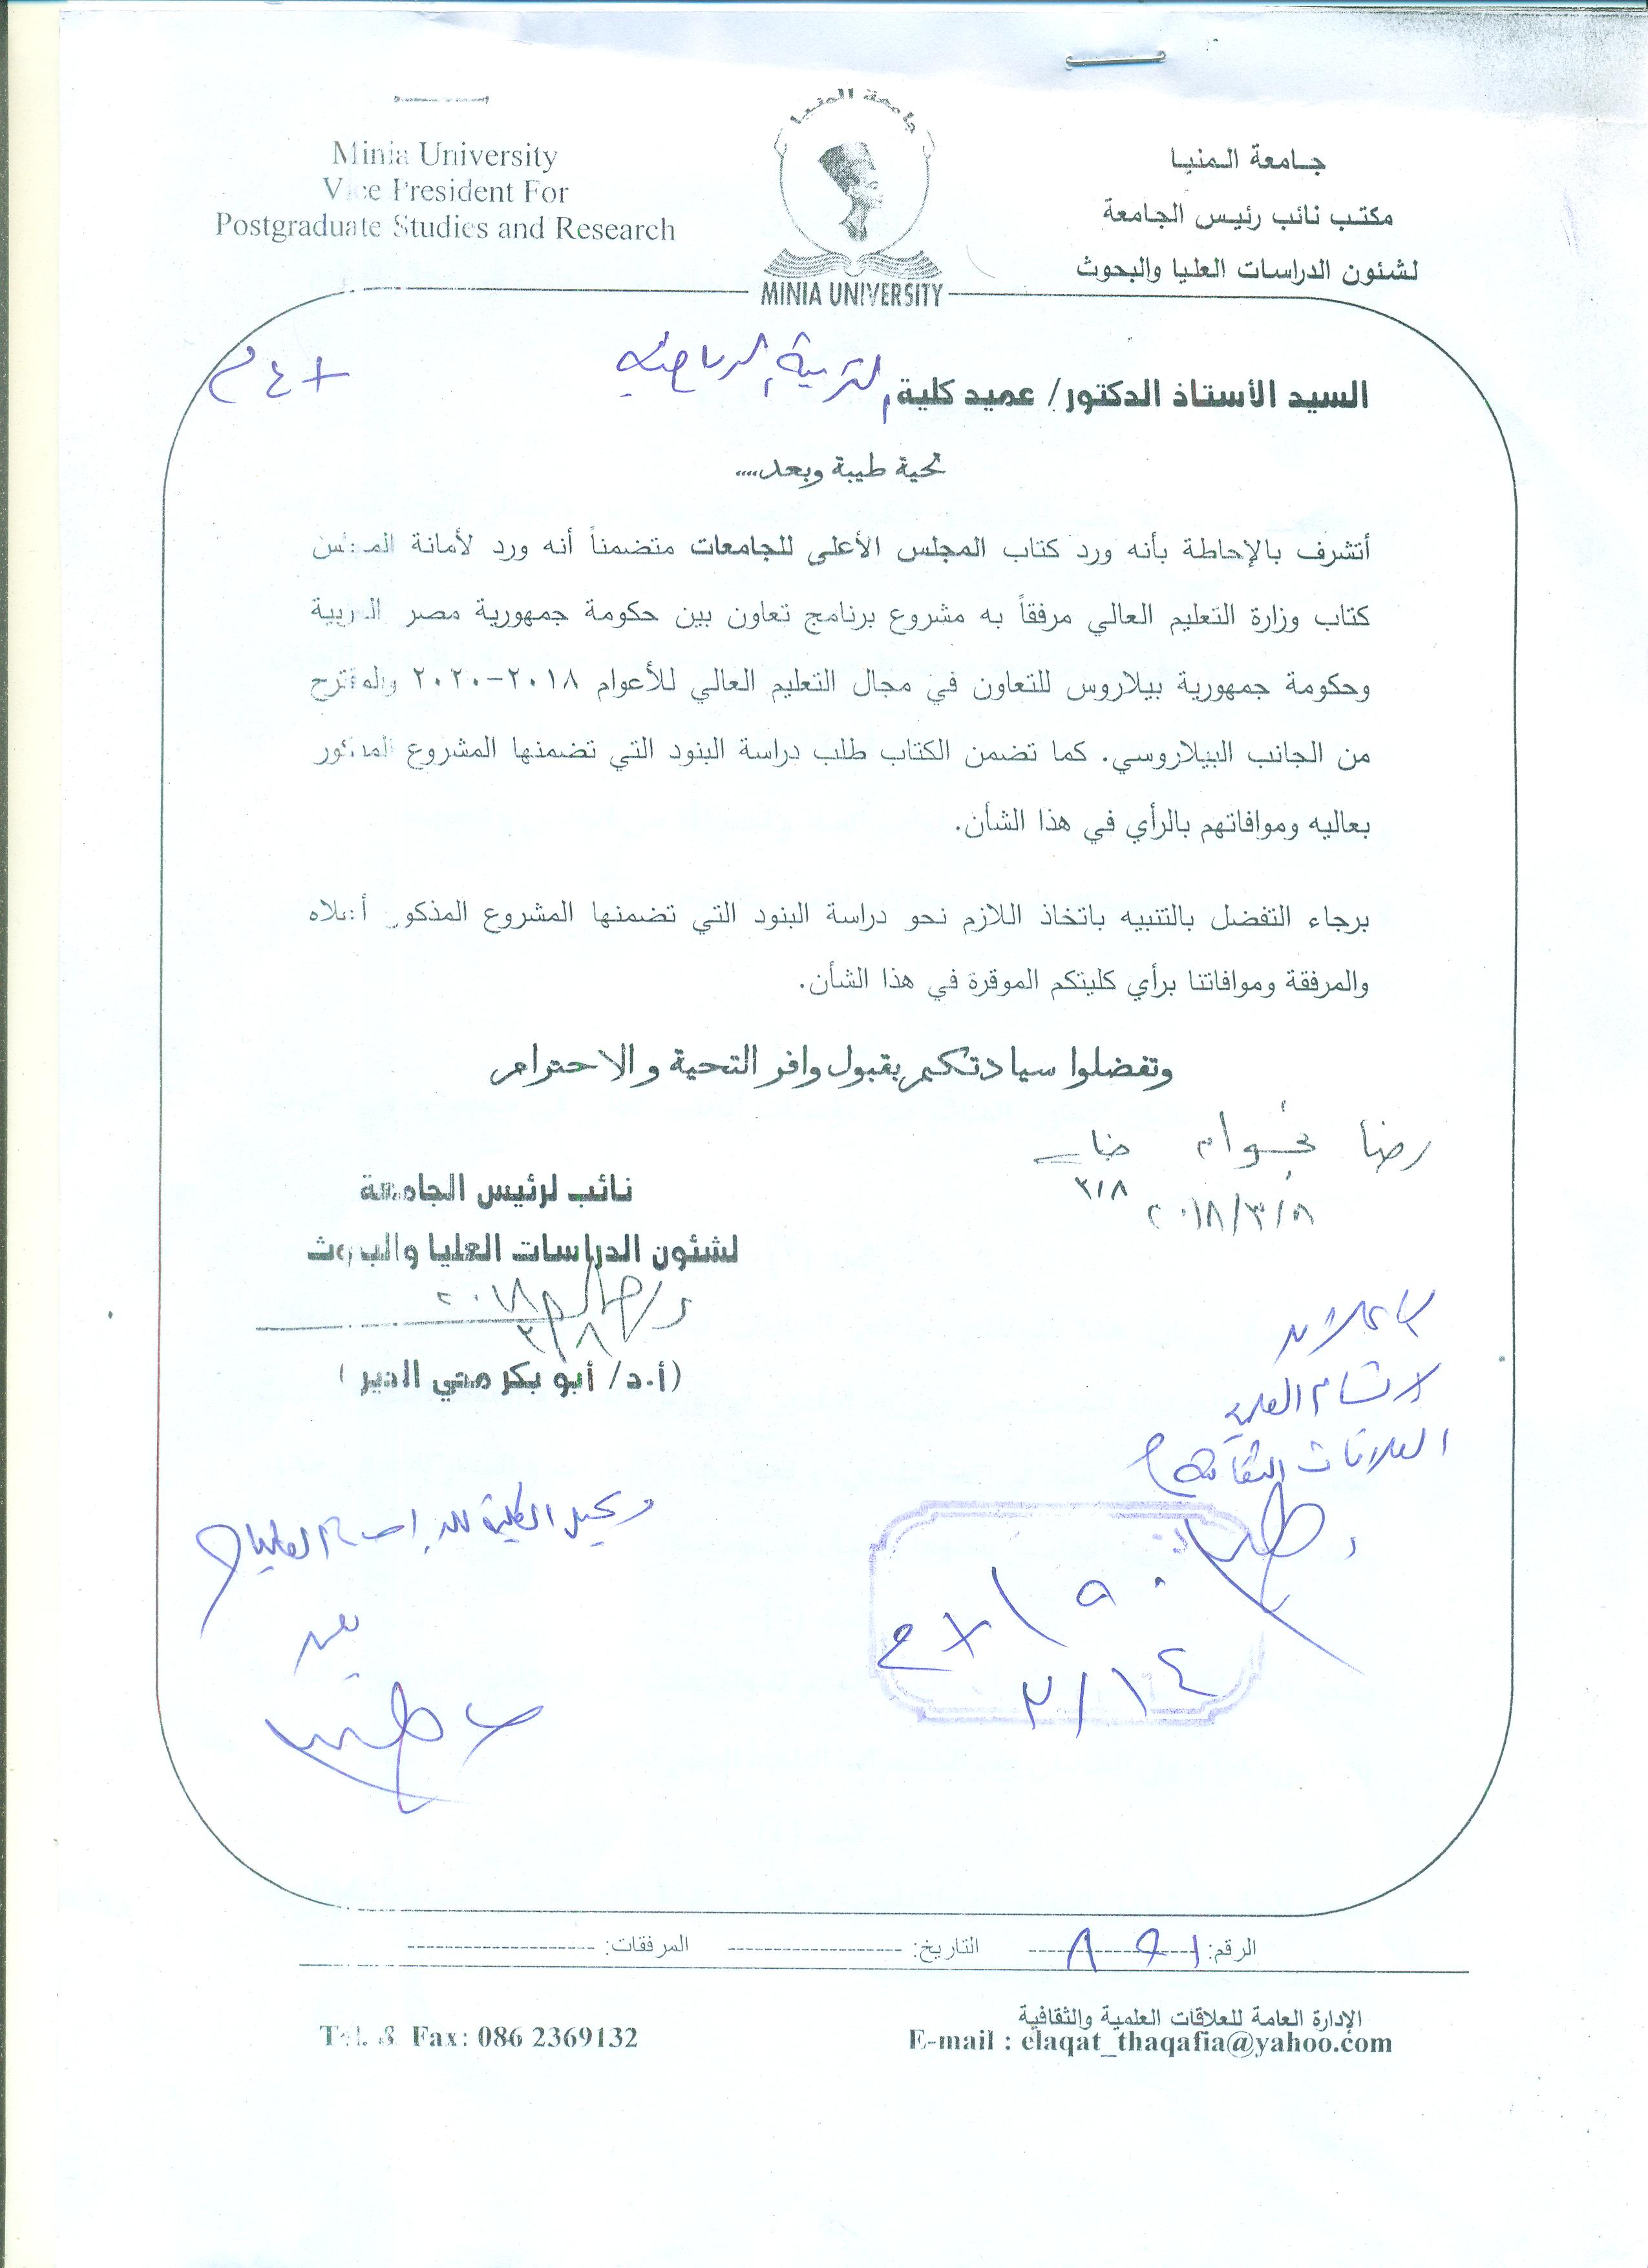 Minia University
Vice President For
Postgraduate Studies and Research
جامعة المنيا
MINIA UNIVERSITY
جامعة المنيا
مكتب نائب رئيس الجامعة
لشئون الدراسات العليا والبحوث
السيد الأستاذ الدكتور/ عميد كلية التربية الرياضية
تحية طيبة وبعد....
أتشرف بالإحاطة بأنه ورد كتاب المجلس الأعلى للجامعات متضمناً أنه ورد لأمانة المجلس
كتاب وزارة التعليم العالي مرفقاً به مشروع برنامج تعاون بين حكومة جمهورية مصر العربية
وحكومة جمهورية بيلاروس للتعاون في مجال التعليم العالي للأعوام ٢٠١٨-٢٠٢٠ والمقترح
من الجانب البيلاروسي. كما تضمن الكتاب طلب دراسة البنود التي تضمنها المشروع المذكور
بعاليه وموافاتهم بالرأي في هذا الشأن.
برجاء التفضل بالتنبيه باتخاذ اللازم نحو دراسة البنود التي تضمنها المشروع المذكور أعلاه
والمرفقة وموافاتنا برأي كليتكم الموقرة في هذا الشأن.
وتفضلوا سيادتكم بقبول وافر التحية والاحترام
رضا
٣/٨
٢٠١٨/٣/٨
نائب رئيس الجامعة
لشئون الدراسات العليا والبحوث
٢٠١٨
٣/٨
(أ.د/ أبو بكر محي الدين)
الأقسام العلمية
العلاقات الثقافية
وكيل الكلية للدراسات العليا
٣/١٤
الرقم: ٨٩١ التاريخ: المرفقات:
الإدارة العامة للعلاقات العلمية والثقافية
E-mail : elaqat_thaqafia@yahoo.com
Tel. & Fax: 086 2369132